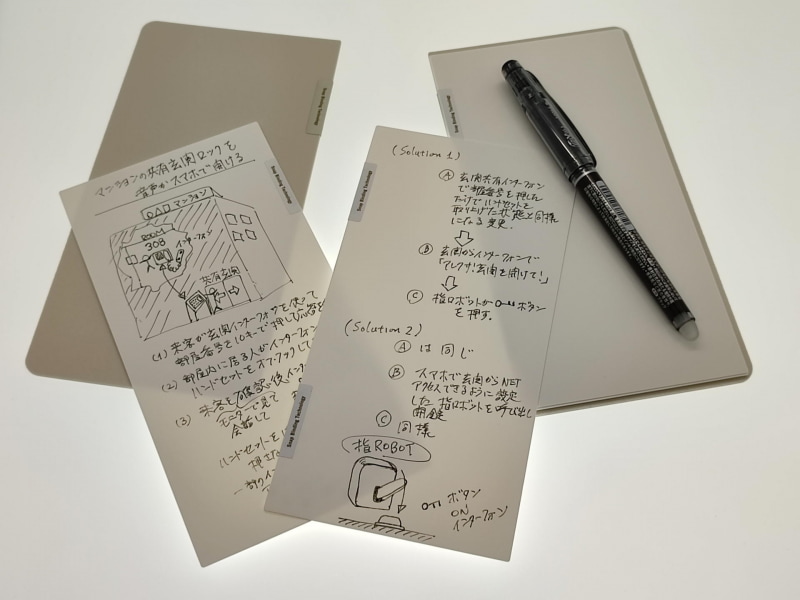 マンションの共有玄関ロックを
音声かスマホで開ける
マンション
ROOM
308
インターフォン
共有玄関
(1) 来客が玄関インターフォンを使って
部屋番号を10キーで押し
(2) 部屋内に居る人がインターフォン
ハンドセットをオフフックして
(3) 来客を確認後
モニターで見て
会話して
ハンドセットを
(Solution 1)
Ⓐ 玄関共有インターフォン
で部屋番号を押した
だけでハンドセットを
取り上げた状態と同様
になる変更.
Ⓑ 玄関からインターフォンで
「アレクサ!玄関を開けて!」
Ⓒ 指ロボットが ボタン
を押す。
(Solution 2)
Ⓐ は同じ
Ⓑ スマホで玄関からNET
アクセスできるように設定
した指ロボットを呼び出し
開錠
Ⓒ 同様
指ROBOT
ボタン
ON
インターフォン
Snap Binding Technology
Snap Binding Technology
Snap Binding Technology
Snap Binding Technology
Snap Binding Technology